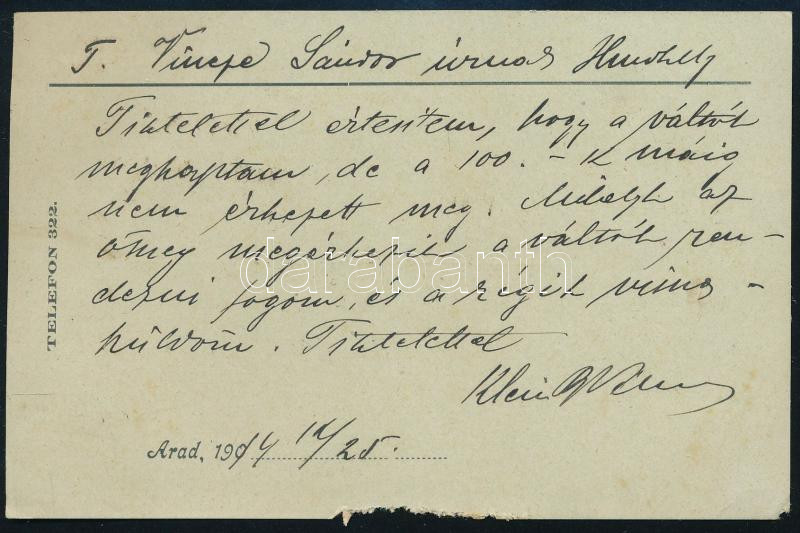 T. Vincze Sándor úrnak
Tisztelettel értesítem, hogy a váltót
megkaptam, de a 100.- K máig
nem érkezett meg. Mihelyt az
összeg megérkezik a váltót ren-
dezni fogom, és a régit vissza-
küldöm. Tisztelettel
Klein
TELEFON 322.
Arad, 19
darabanth